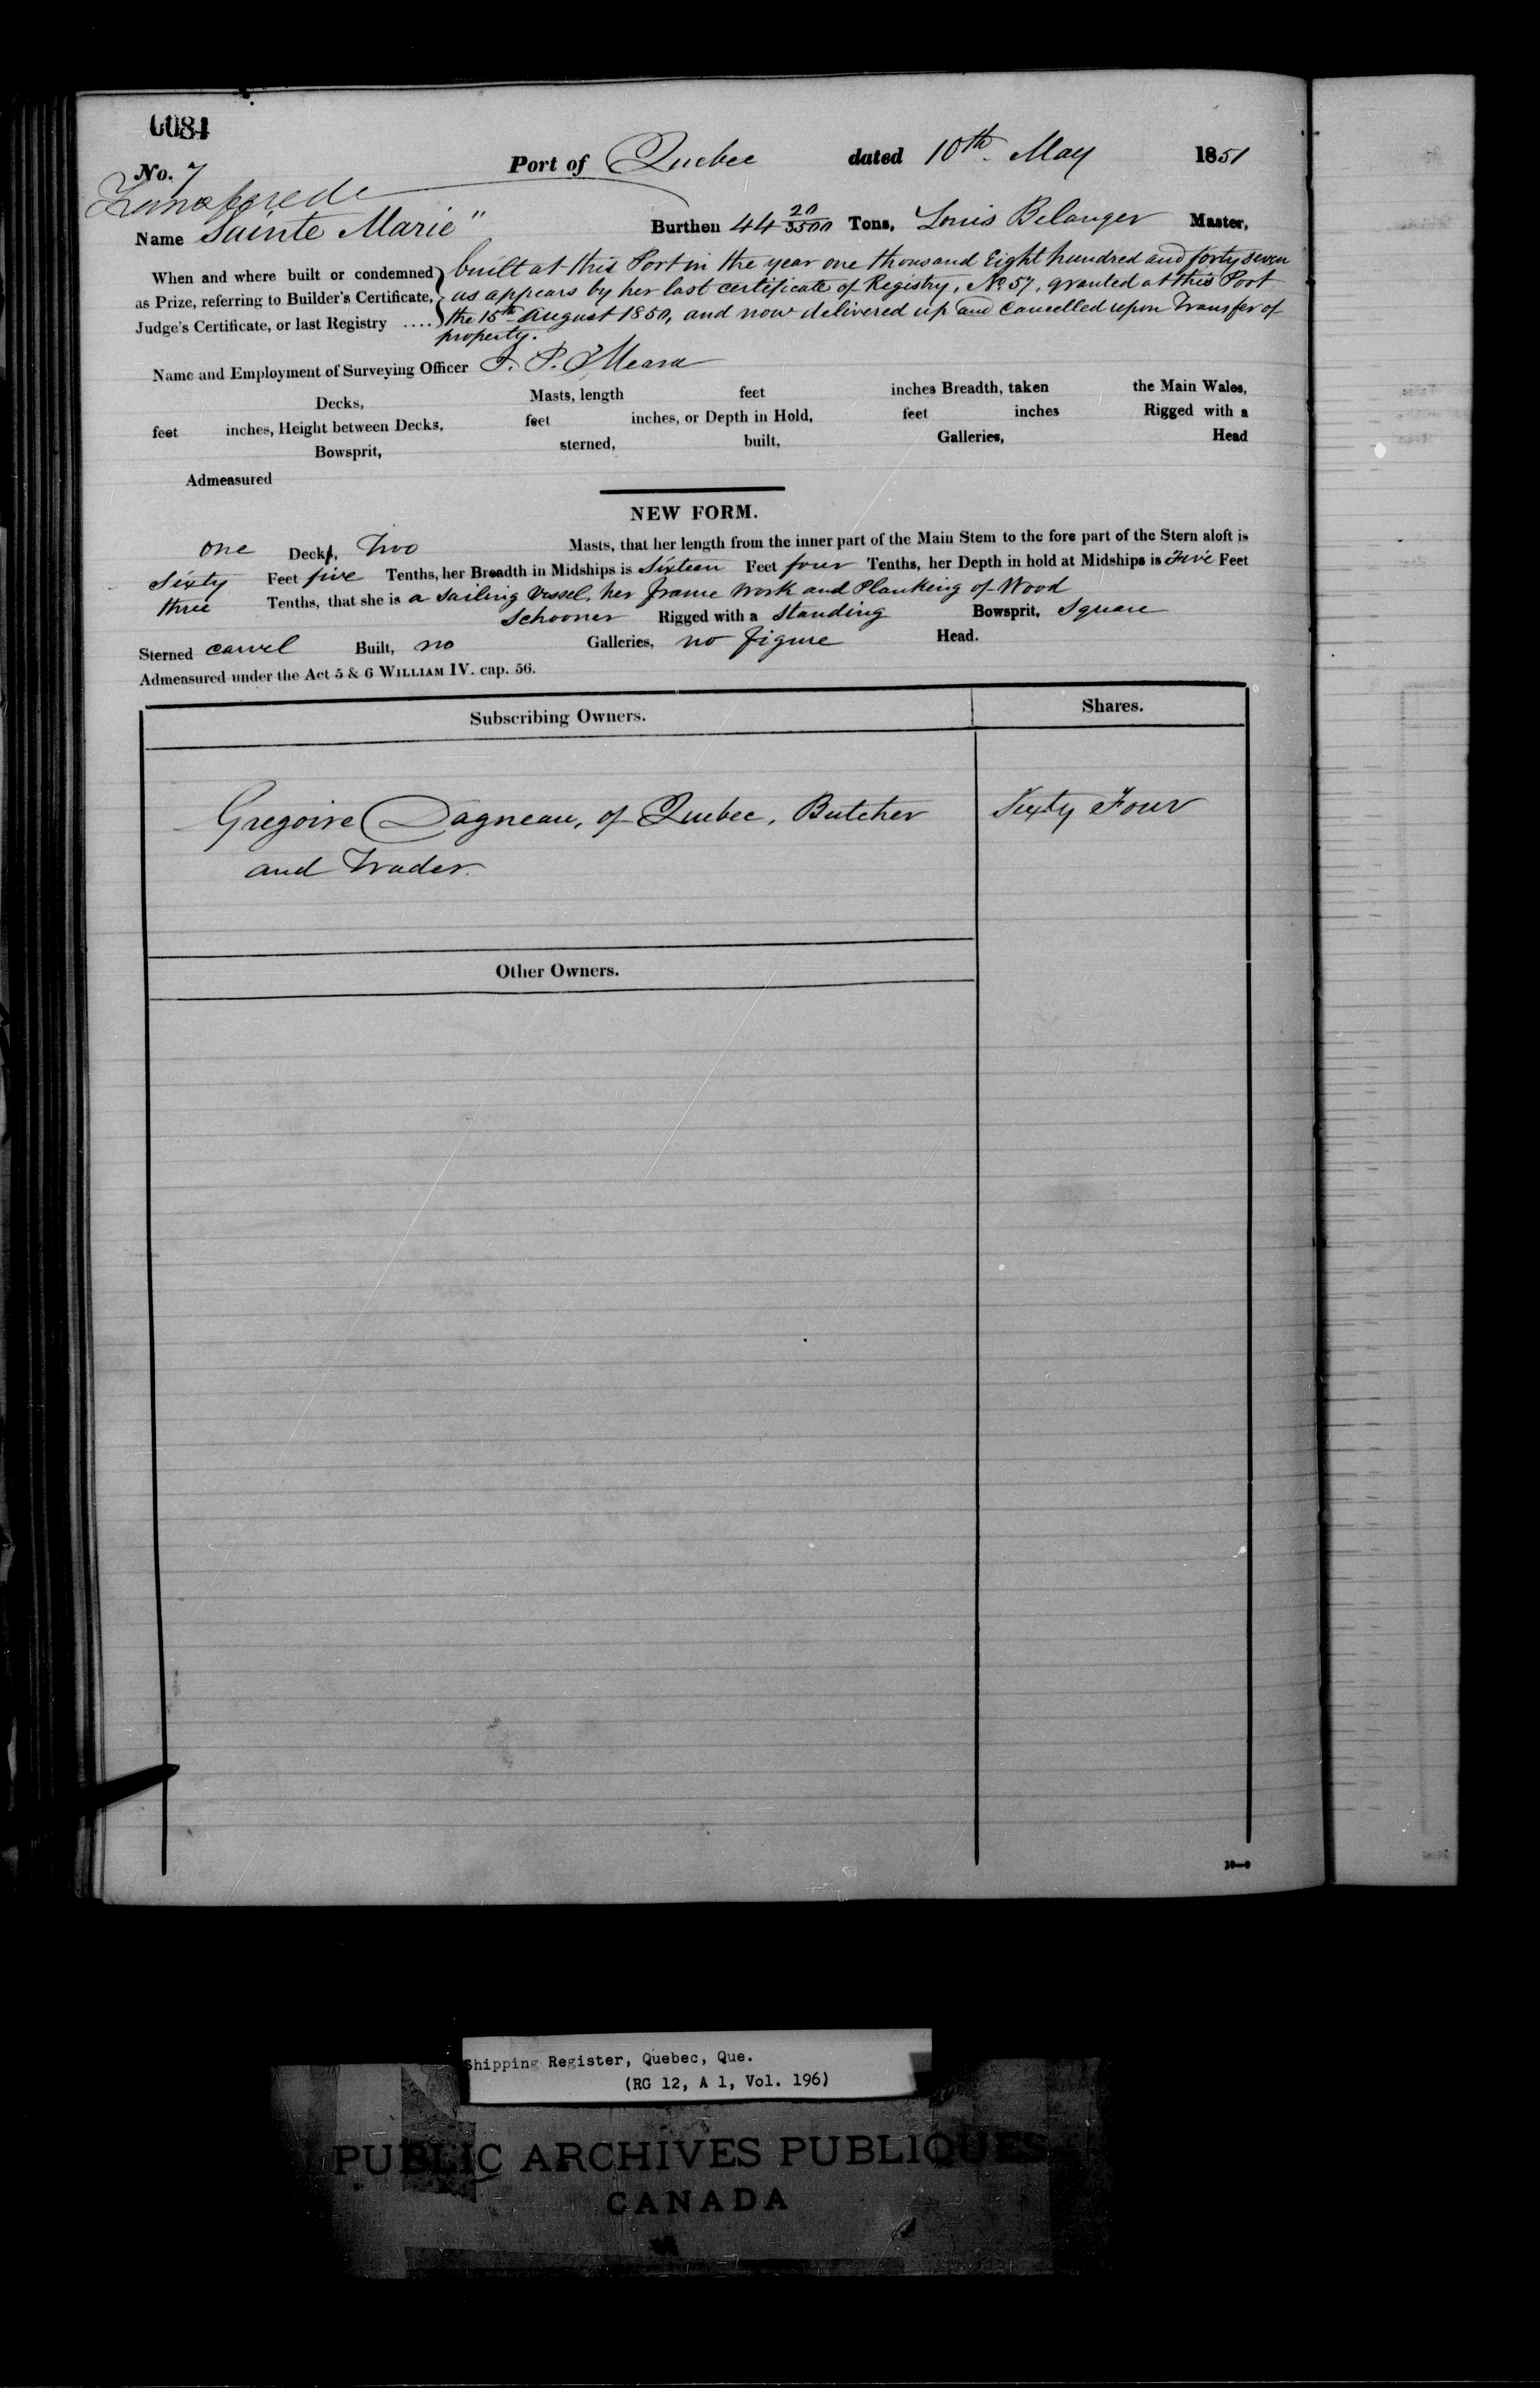 0084
No. 7 Port of Quebec dated 10th May 1851
Name "Sainte Marie" Burthen 44 20/3500 Tons, Louis Belanger Master,
When and where built or condemned as Prize, referring to Builder's Certificate, Judge's Certificate, or last Registry ....
built at this Port in the year one thousand Eight hundred and forty seven
as appears by her last certificate of Registry, No. 57, granted at this Port
the 15th August 1850, and now delivered up and cancelled upon Transfer of
property.
Name and Employment of Surveying Officer J. P. O'Meara
Decks, Masts, length feet inches Breadth, taken the Main Wales,
feet inches, Height between Decks, feet inches, or Depth in Hold, feet inches Rigged with a
Bowsprit, sterned, built, Galleries, Head
Admeasured
NEW FORM.
one Deck, Two Masts, that her length from the inner part of the Main Stem to the fore part of the Stern aloft is
Sixty Feet five Tenths, her Breadth in Midships is Sixteen Feet four Tenths, her Depth in hold at Midships is Five Feet
three Tenths, that she is a sailing vessel, her frame work and Planking of Wood
Schooner Rigged with a Standing Bowsprit, Square
Sterned carvel Built, no Galleries, no figure Head.
Admeasured under the Act 5 & 6 WILLIAM IV. cap. 56.
Subscribing Owners. Shares.
Gregoire Dagneau, of Quebec, Butcher Sixty Four
and Trader.
Other Owners.
10—9
Shipping Register, Quebec, Que.
(RG 12, A 1, Vol. 196)
PUBLIC ARCHIVES PUBLIQUES
CANADA